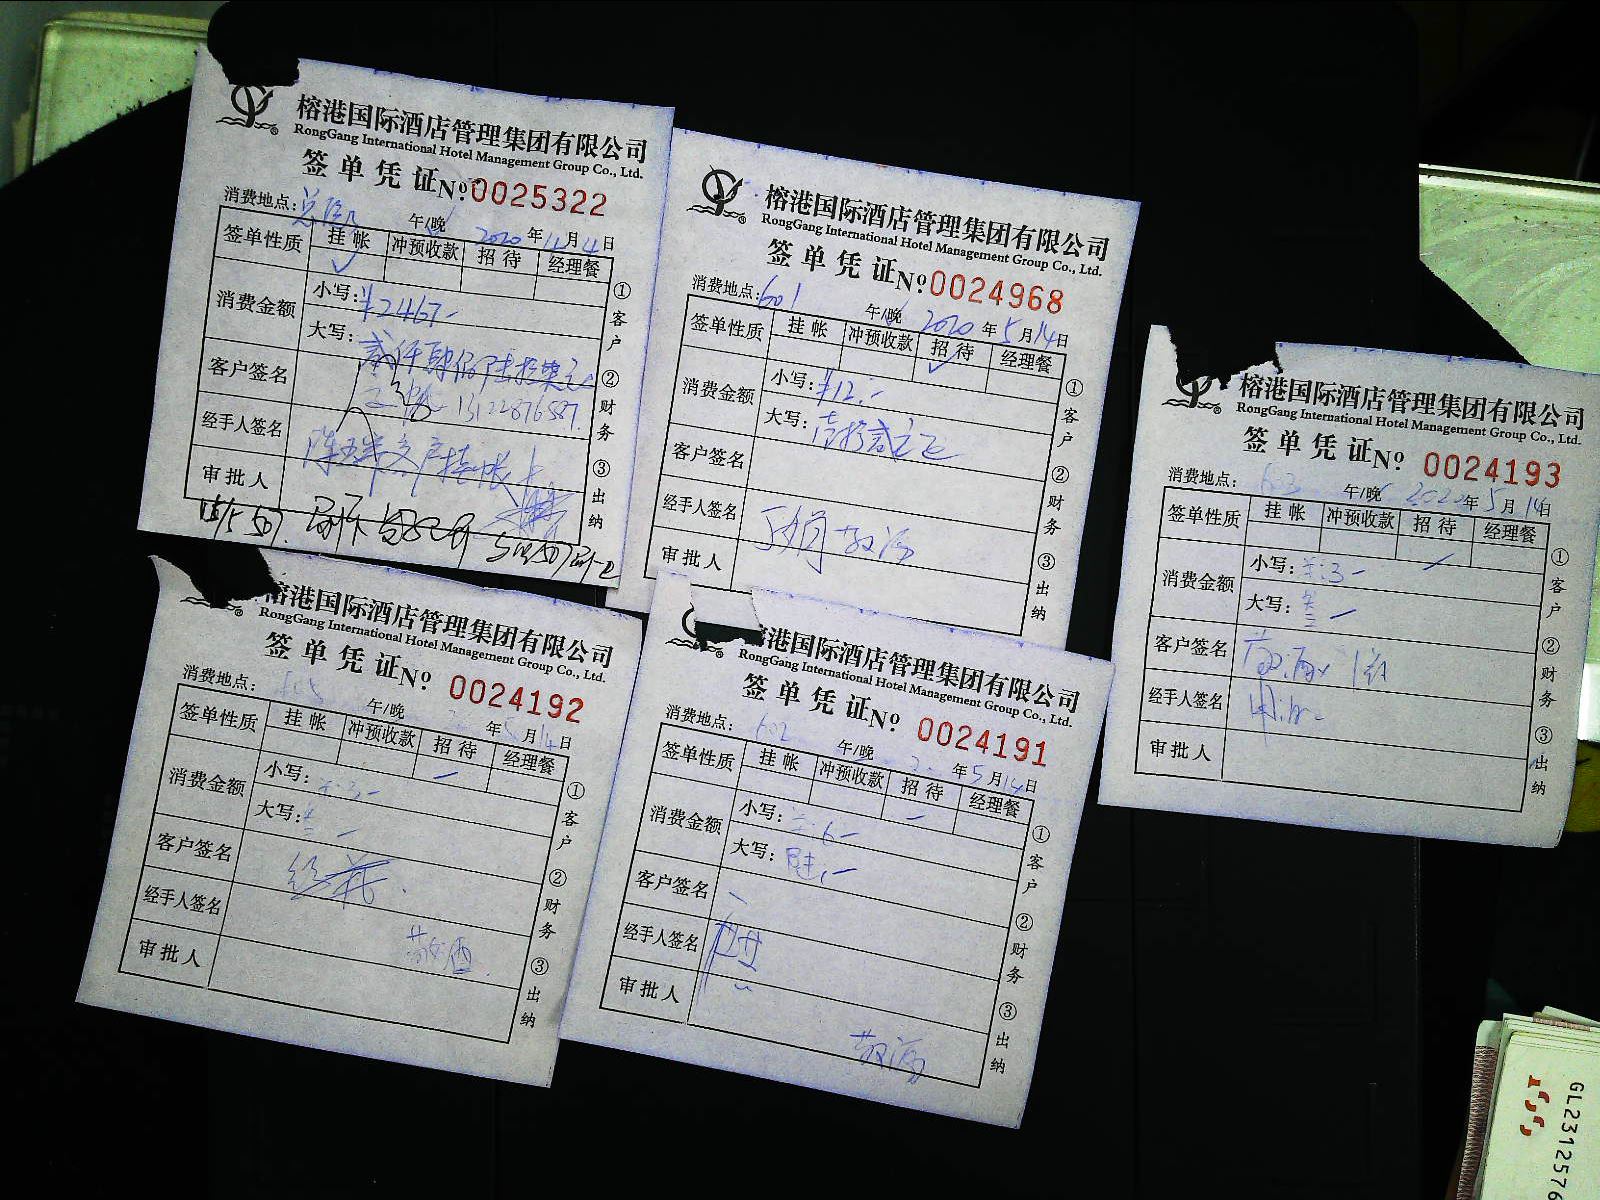 榕港国际酒店管理集团有限公司
RongGang International Hotel Management Group Co., Ltd.
签单凭证 Nº 0025322
消费地点: 午/晚 2020 年 月 4 日
签单性质 挂帐 冲预收款 招待 经理餐
✓
消费金额 小写: ¥2467-
大写: 贰仟肆佰陆拾柒元
客户签名 13122876587
经手人签名 挂帐
审批人
① 客户 ② 财务 ③ 出纳
榕港国际酒店管理集团有限公司
RongGang International Hotel Management Group Co., Ltd.
签单凭证 Nº 0024968
消费地点: 601 午/晚 2020 年 5 月 14 日
签单性质 挂帐 冲预收款 招待 经理餐
✓
消费金额 小写: ¥12.-
大写: 壹拾贰元正
客户签名
经手人签名 敬酒
审批人
① 客户 ② 财务 ③ 出纳
榕港国际酒店管理集团有限公司
RongGang International Hotel Management Group Co., Ltd.
签单凭证 Nº 0024193
消费地点: 603 午/晚 2020 年 5 月 14 日
签单性质 挂帐 冲预收款 招待 经理餐
消费金额 小写: 3-
大写:
客户签名 敬酒
经手人签名
审批人
① 客户 ② 财务 ③ 出纳
榕港国际酒店管理集团有限公司
RongGang International Hotel Management Group Co., Ltd.
签单凭证 Nº 0024192
消费地点: 午/晚 年 5 月 14 日
签单性质 挂帐 冲预收款 招待 经理餐
消费金额 小写: 3-
大写:
客户签名
经手人签名 敬酒
审批人
① 客户 ② 财务 ③ 出纳
榕港国际酒店管理集团有限公司
RongGang International Hotel Management Group Co., Ltd.
签单凭证 Nº 0024191
消费地点: 602 午/晚 年 5 月 14 日
签单性质 挂帐 冲预收款 招待 经理餐
消费金额 小写: 6-
大写: 陆
客户签名
经手人签名
审批人
敬酒
① 客户 ② 财务 ③ 出纳
GL2312576